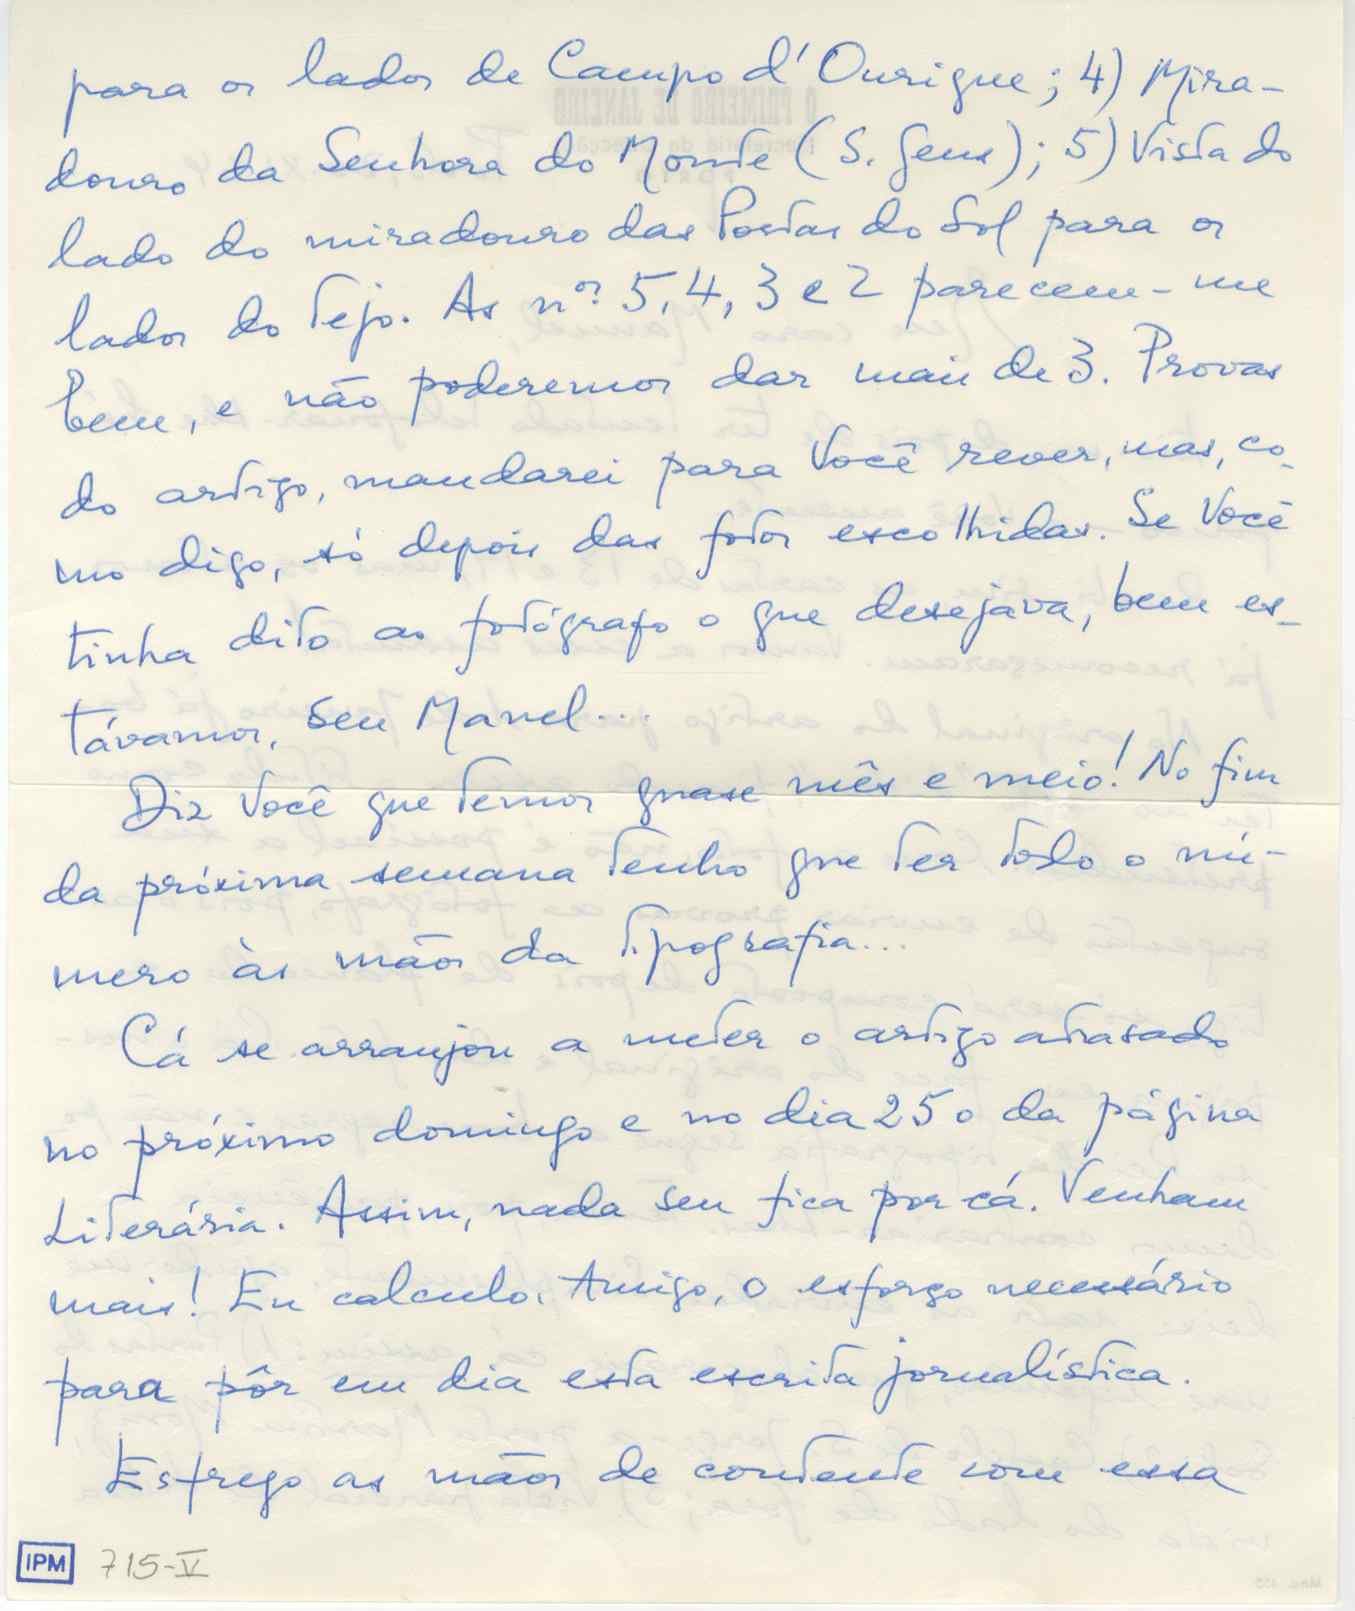 para os lados de Campo d'Ourique; 4) Mira-
douro da Senhora do Monte (S. Gens); 5) Vista do
lado do miradouro das Portas do Sol para os
lados do Tejo. As nºs 5, 4, 3 e 2 parecem-me
bem, e não poderemos dar mais de 3. Provas
do artigo, mandarei para Você rever, mas, co-
mo digo, só depois das fotos escolhidas. Se Você
tinha dito ao fotógrafo o que desejava, bem es-
távamos, seu Manel...
Diz Você que temos quase mês e meio! No fim
da próxima semana tenho que ter todo o nú-
mero às mãos da tipografia...
Cá se arranjou a meter o artigo atrasado
no próximo domingo e no dia 25 o da página
Literária. Assim, nada seu fica por cá. Venham
mais! Eu calculo, Amigo, o esforço necessário
para pôr em dia esta escrita jornalística.
Esfrego as mãos de contente com essa
IPM 715-V